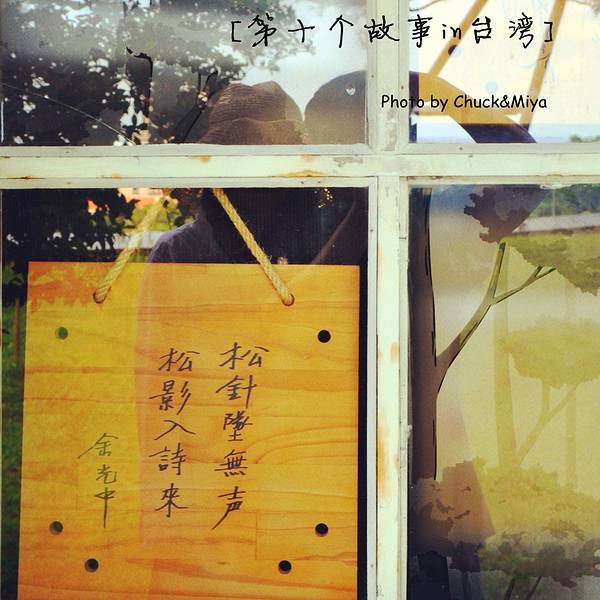 [第十个故事in台湾]
Photo by Chuck&Miya
松針墜無声
松影入詩來
余光中